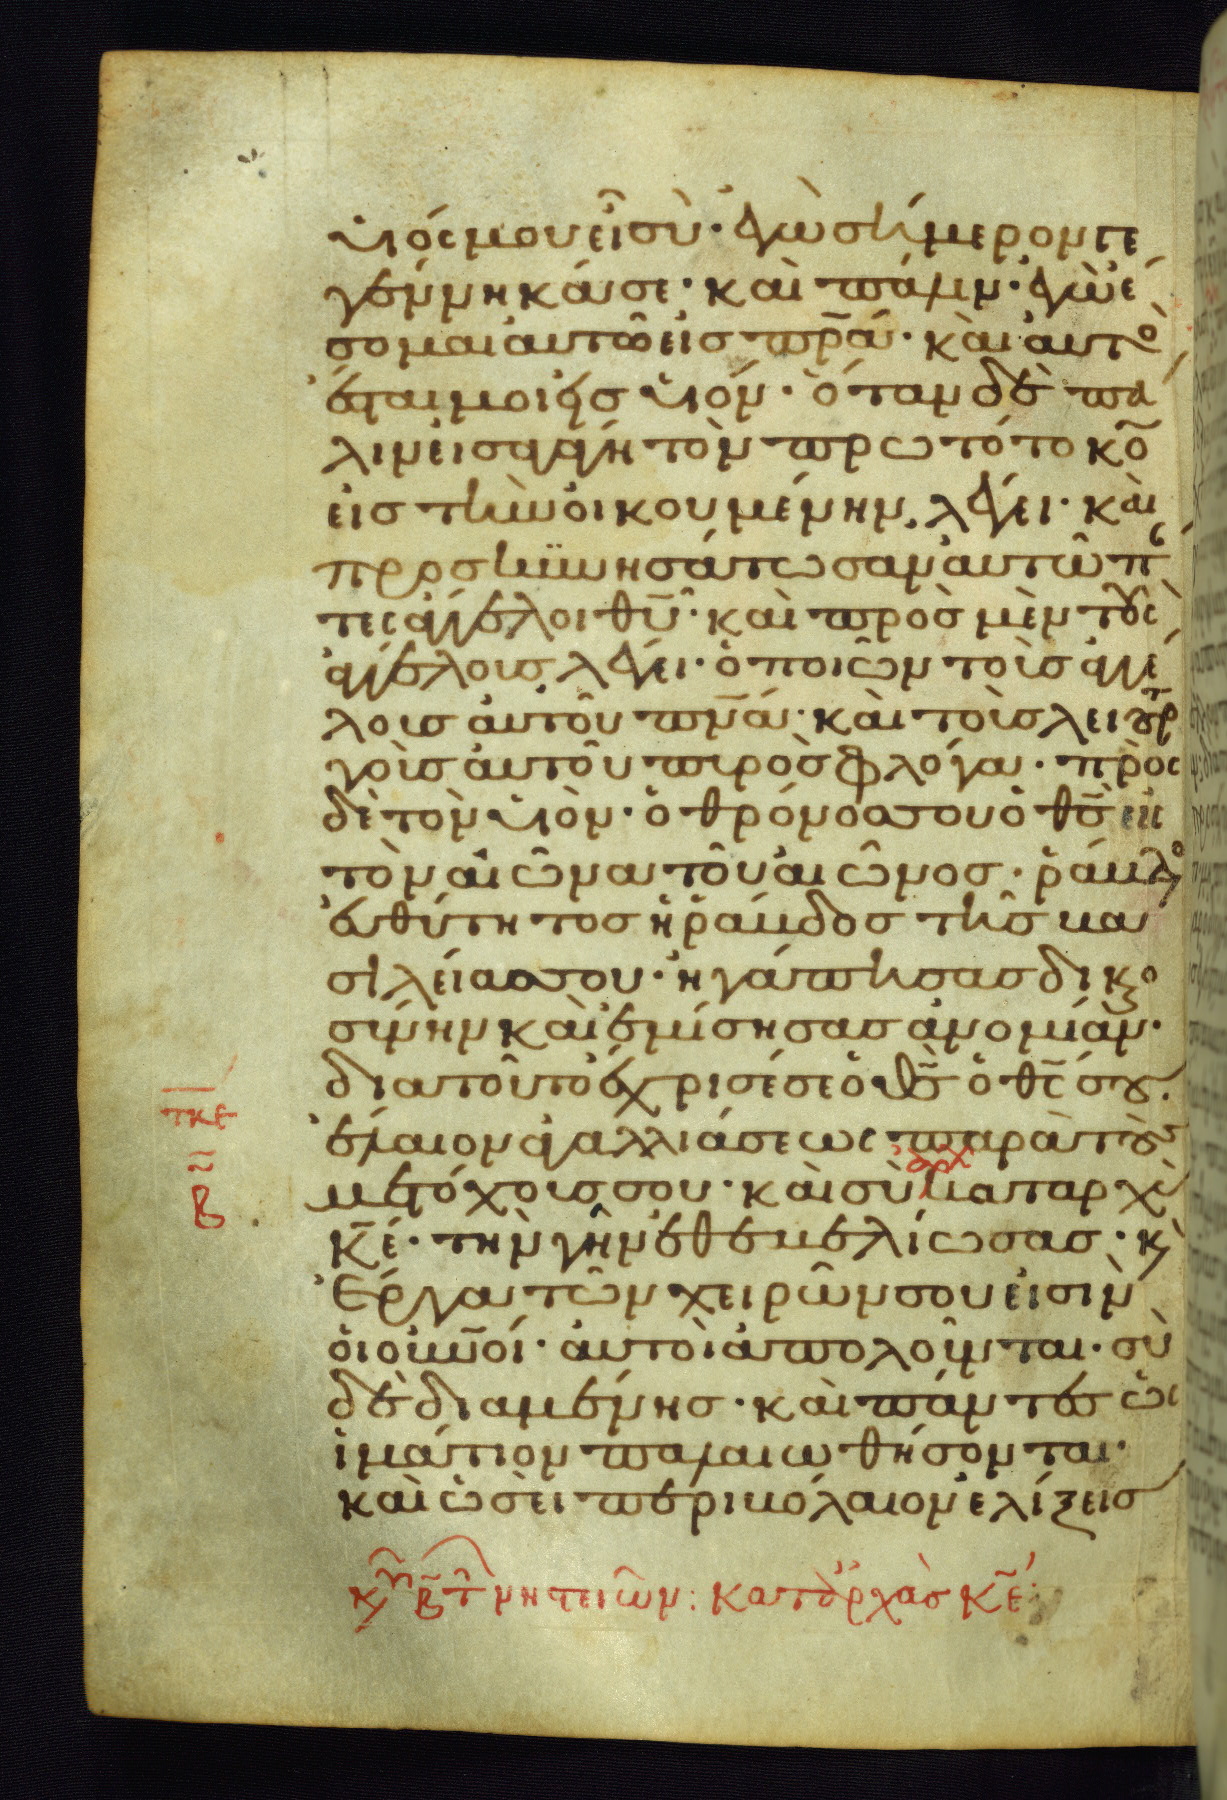 υἱός μου εἶ σὺ· ἐγὼ σήμερον γε
γέννηκά σε· καὶ πάλιν· ἐγὼ ἔ
σομαι αὐτῶ εἰς πρ̅α· καὶ αὐτὸς
ἔσται μοι εἰς υἱόν· ὅταν δὲ πά
λιν εἰσαγάγη τὸν πρωτότοκο̅
εἰς τὴν οἰκουμένην, λέγει· καὶ
προσκυνησάτωσαν αὐτῶ πάν
τες ἄγγελοι θυ̅· καὶ πρὸς μὲν τοὺς
ἀγγέλους λέγει· ὁ ποιῶν τοὺς ἀγγέ
λους αὐτοῦ πν̅α· καὶ τοὺς λειτουρ
γοὺς αὐτοῦ πυρὸς φλόγα· πρὸς
δὲ τὸν υἱὸν· ὁ θρόνος σου ὁ θς̅ εἰς
τὸν αἰῶνα τοῦ αἰῶνος· ῥάβδος
εὐθύτητος ἡ ῥάβδος τῆς βα
σιλείας σου· ἠγάπησας δικαιο
σύνην καὶ ἐμίσησας ἀνομίαν·
διατοῦτο ἔχρισέ σε ὁ θς̅ ὁ θς̅ σου.
ἔλαιον ἀγαλλιάσεως παρὰ τοὺς
μετόχους σου· καὶ σὺ κατ' ἀρχὰς
κε̅· τὴν γῆν ἐθεμελίωσας· κ(αὶ)
ἔργα τῶν χειρῶν σου εἰσὶν
οἱ οὐνοί· αὐτοὶ ἀπολοῦνται· σὺ
δὲ διαμένης· καὶ πάντες ὡς
ἱμάτιον παλαιωθήσονται·
καὶ ὡσεὶ περιβόλαιον ἑλίξεις
τκε
β
ἀρχ
κυ(ριακῇ) β τ(ῶν) νηστειῶν: κατ' ἀρχὰς κε̅: